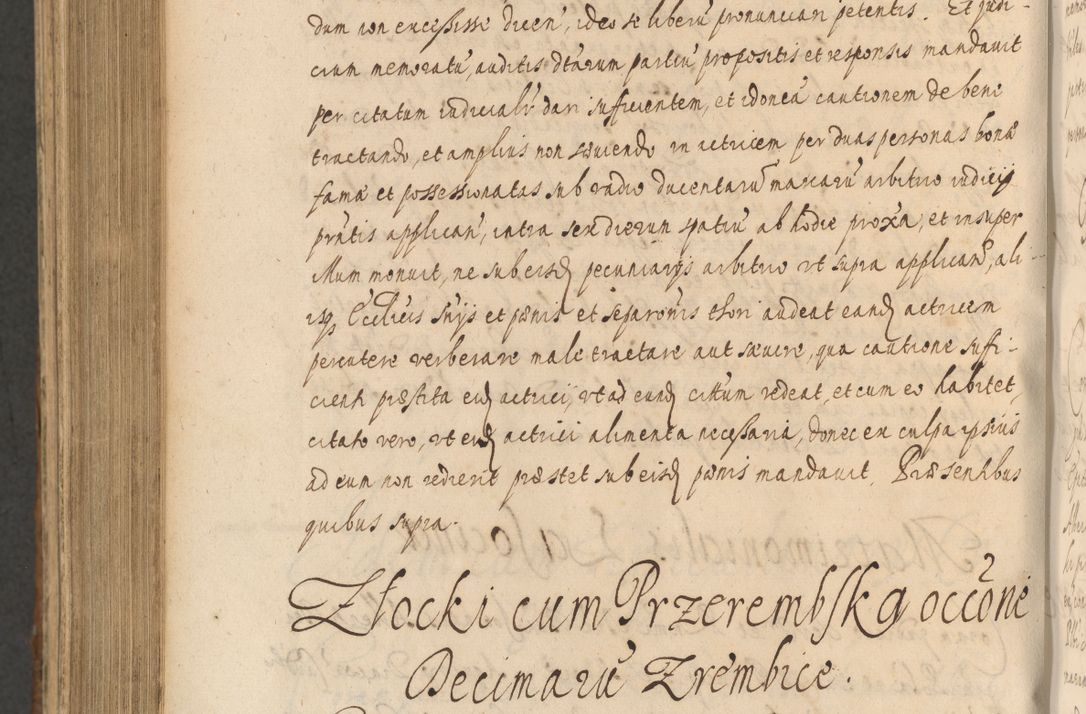 dum non excessisse dicen̄, ideo se liberū pronunciari petentis. Et judi-
cium memoratū, auditis dtārum partiū propositis et responsis mandavit
per citatum iudicialr̄ dari sufficientem, et idoneā cautionem de bene
tractando, et amplius non sæviendo in actricem per duas personas bonæ
famæ et possessionatas sub vadio ducentarū marcarū arbitrio iudicij
prn̄tis applican̄, intra sex dierum spatiū ab hodie proxa, et insuper
illum monuit, ne sub eisd pecuniarijs arbitrio vt supra applican̄, ali-
isq Ecclicis sn̄ijs et pænis et separon̄is thori audeat eand actricem
percutere verberare male tractare aut sævire, qua cautione suffi-
cienti præstita eid actrici, vt ad eund cittum redeat, et cum eo habitet,
citato vero, vt eid actrici alimenta necessaria, donec ex culpa ipsius
ad eum non redierit præstet sub eisd pænis mandavit. Præsentibus
quibus supra.
Złocki cum Przerembska occōne
Decimarū Zrembice.